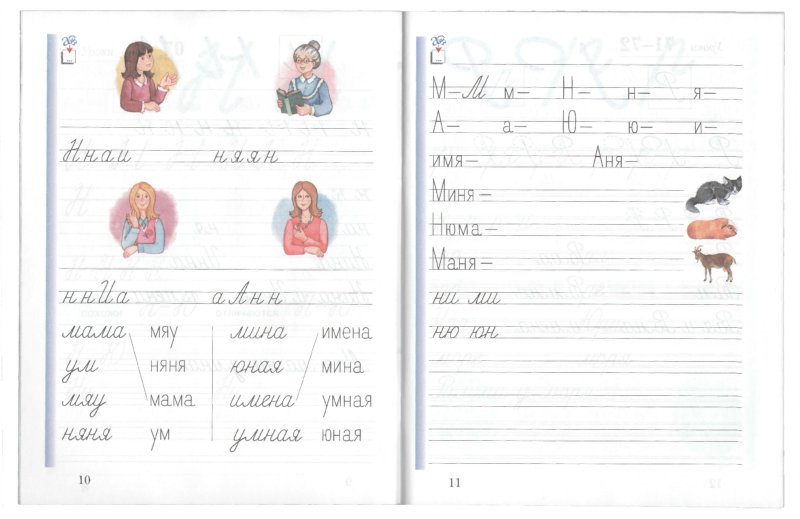 Ннаи няян
ннИа аАнн
мама мяу мина имена
ум няня юная мина
мяу мама имена умная
няня ум умная юная
10
М–М м– Н– н– я–
А– а– Ю– ю– и–
имя– Аня–
Миня–
Нюма–
Маня–
ни ми
ню юн
11